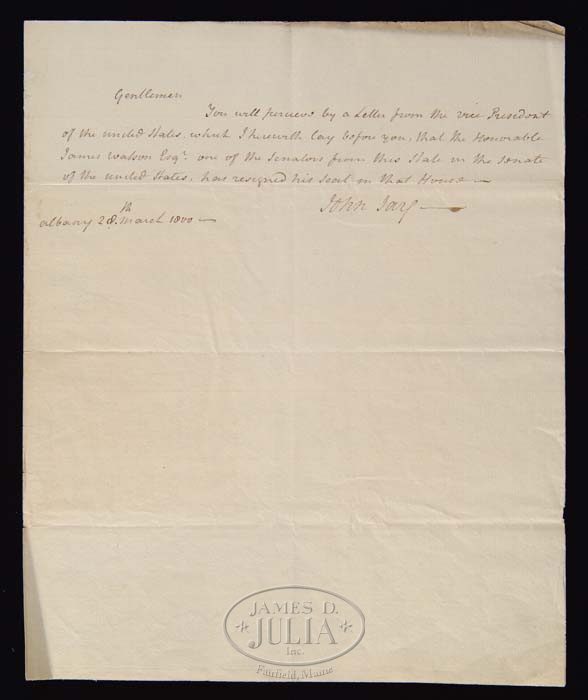 Gentlemen
You will percieve by a Letter from the vice President
of the united States, which I herewith lay before you, that the Honorable
James Watson Esqr. one of the Senators from this State in the Senate
of the united States, has resigned his Seat in that House —
John Jay —
albany 28th. march 1800 —
JAMES D.
JULIA
Inc.
Fairfield, Maine